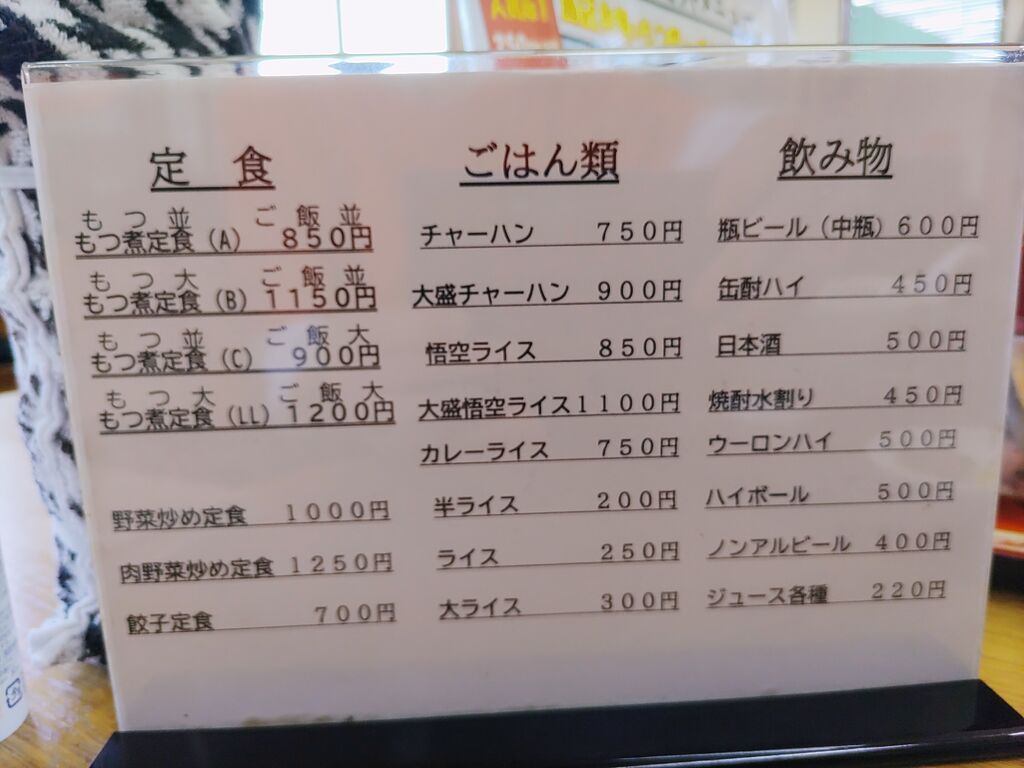 定　食
も つ 並　ご 飯 並
もつ煮定食（A）　８５０円
も つ 大　ご 飯 並
もつ煮定食（B）１１５０円
も つ 並　ご 飯 大
もつ煮定食（C）　９００円
も つ 大　ご 飯 大
もつ煮定食（LL）１２００円
野菜炒め定食　１０００円
肉野菜炒め定食　１２５０円
餃子定食　７００円
ごはん類
チャーハン　７５０円
大盛チャーハン　９００円
悟空ライス　８５０円
大盛悟空ライス１１００円
カレーライス　７５０円
半ライス　２００円
ライス　２５０円
大ライス　３００円
飲み物
瓶ビール（中瓶）６００円
缶酎ハイ　４５０円
日本酒　５００円
焼酎水割り　４５０円
ウーロンハイ　５００円
ハイボール　５００円
ノンアルビール　４００円
ジュース各種　２２０円